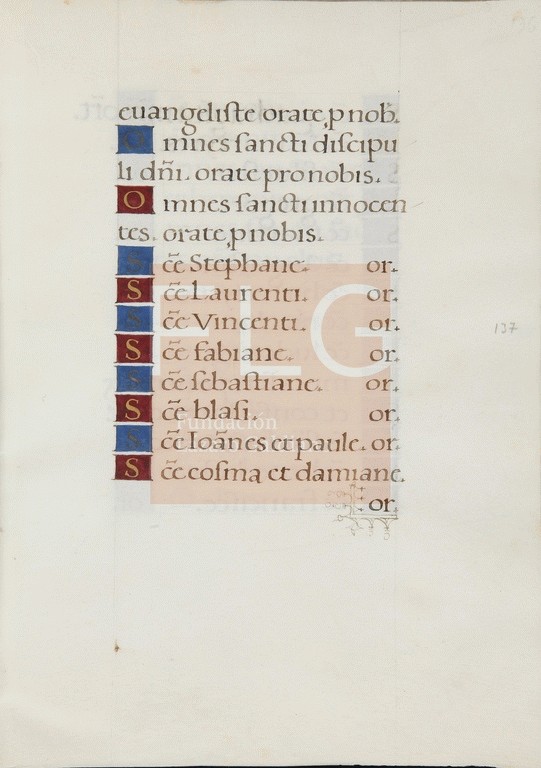 euangeliste orate, p nob.
Omnes sancti discipu
li dñi. orate pro nobis.
Omnes sancti innocen
tes. orate, p nobis.
Sc̃e Stephane. or.
Sc̃e Laurenti. or.
Sc̃e Vincenti. or.
Sc̃e fabiane. or.
Sc̃e sebastiane. or.
Sc̃e blasi. or.
Sc̃e Ioãnes et paule. or.
Sc̃e cosma et damiane.
or.
137
FLG
Fundación